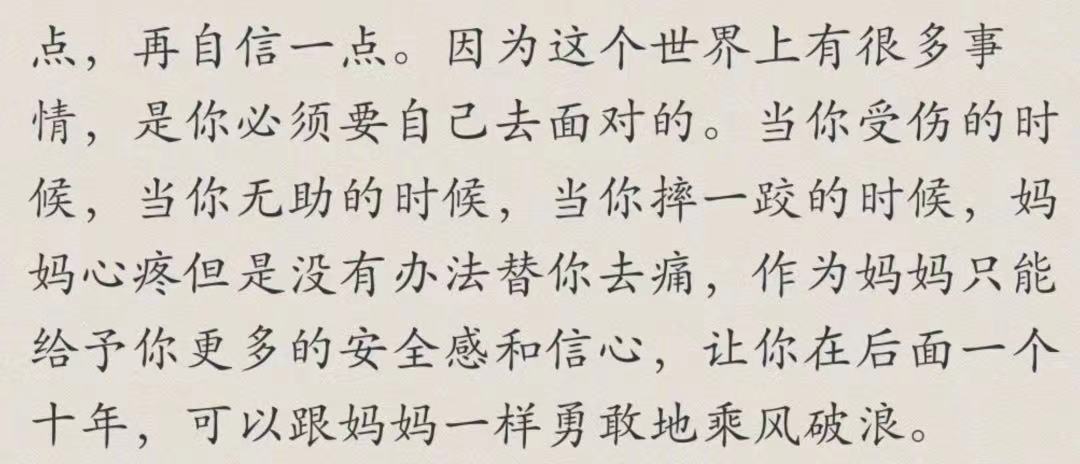 点，再自信一点。因为这个世界上有很多事
情，是你必须要自己去面对的。当你受伤的时
候，当你无助的时候，当你摔一跤的时候，妈
妈心疼但是没有办法替你去痛，作为妈妈只能
给予你更多的安全感和信心，让你在后面一个
十年，可以跟妈妈一样勇敢地乘风破浪。